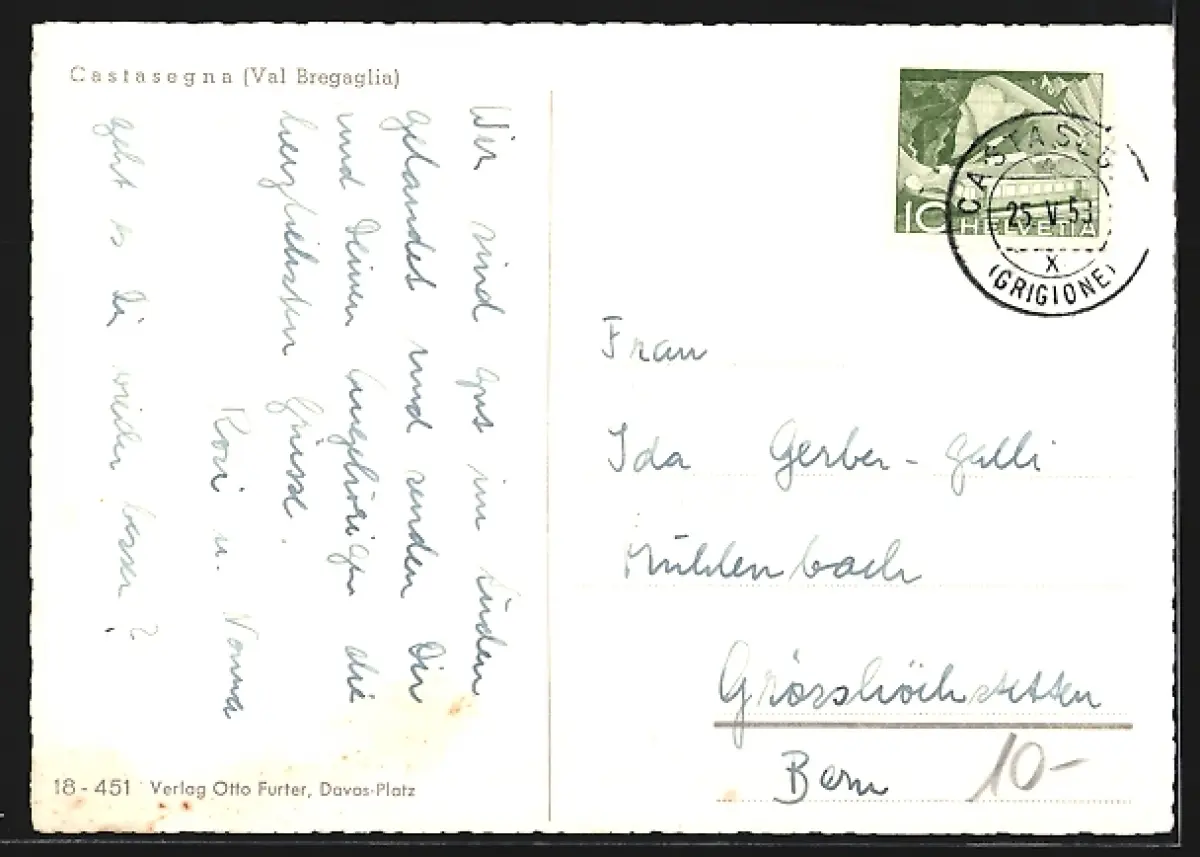 Castasegna (Val Bregaglia)
Wir sind gut im Süden
gelandet und senden Dir
und Deinen Angehörigen die
herzlichsten Grüsse.
Roni u. Nonna
geht es Dir wieder besser?
18 - 451 Verlag Otto Furter, Davos-Platz
10 HELVETIA
CASTASEG
25 V 53
X
(GRIGIONE)
Frau
Ida Gerber-Galli
Mühlenbach
Grösshöchstetten
Bern
10-